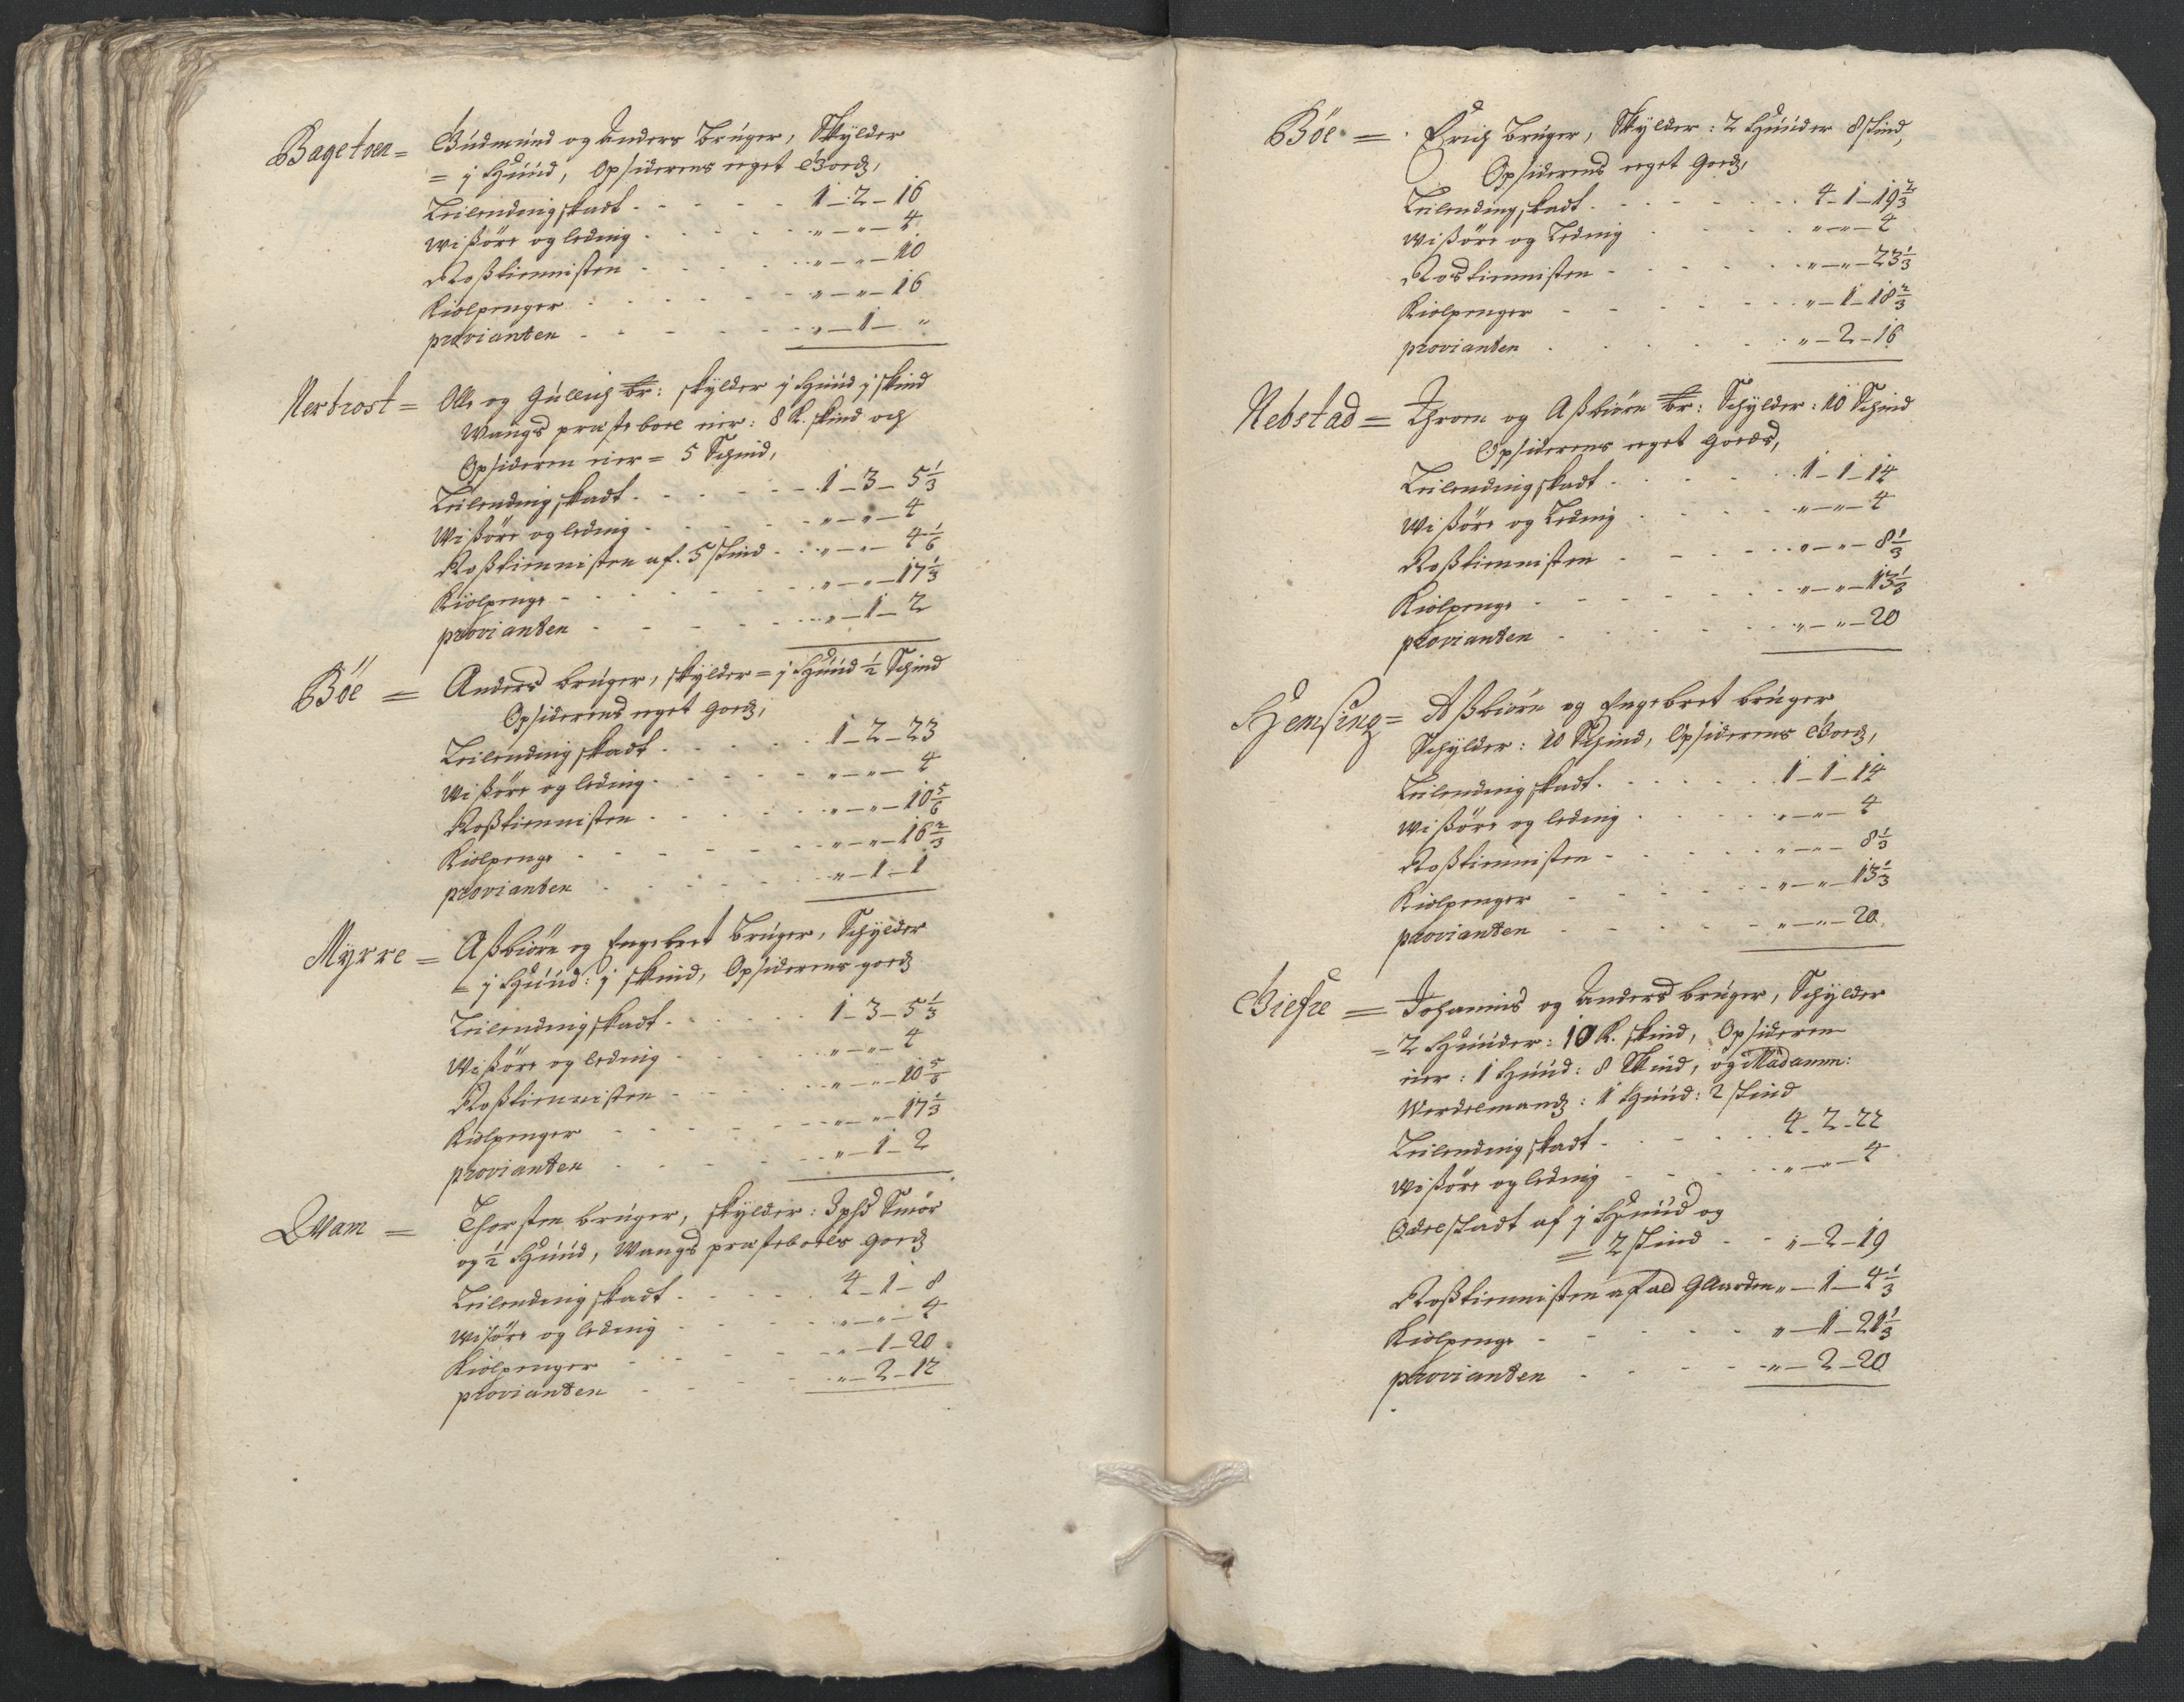 Bagetoen = Gudmund og Anders bruger, Skylder
= j Huud, Opsiderens eget Goedz,
Leilending skadt - - - 1 - 2 - 16
Wißöre og leding - - - " - " - 4
Roßtiennisten - - - " - " - 10
Kiolpenger - - - " - " - 16
provianten - - - " - 1 - "
Nerbrost = Olle og Gullich br: skylder j Huud j skind
Wangs præstebole eier: 8 K. skind och
Opsideren eier = 5 Schind,
Leilending skadt - - - 1 - 3 - 5 1/3
Wißöre og leding - - - " - " - 4
Roßtiennisten af. 5 skind - - " - " - 4 1/6
Kiolpenge - - - " - " - 17 1/3
provianten - - - " - 1 - 2
Böe = Anders bruger, skylder = j Huud 1/2 Schind
Opsiderens eget goedz,
Leilending skadt - - - 1 - 2 - 23
Wißöre og leding - - - " - " - 4
Roßtiennisten - - - " - " - 10 5/6
Kiolpenge - - - " - " - 16 2/3
provianten - - - " - 1 - 1
Myrre = Aßbiörn og Engebret bruger, Schylder
= j Huud: j skind, Opsiderens goedz
Leilending skadt - - - 1 - 3 - 5 1/3
Wißöre og leding - - - " - " - 4
Roßtiennisten - - - " - " - 10 5/6
Kiolpenger - - - " - " - 17 1/3
provianten - - - " - 1 - 2
Qvam = Thorsten bruger, skylder: Smör
og 1/2 Huud, Wangs præsteboels goedz
Leilending skadt - - - 4 - 1 - 8
Wisöre og leding - - - " - " - 4
Kiolpenger - - - " - 1 - 20
provianten - - - " - 2 - 12
Böe = Erich bruger, Skylder: 2 Huuder 8 skind,
Opsiderens eget Goedz,
Leilending skadt - - - 4 - 1 - 19 2/3
Wißöre og Leding - - - " - " - 4
Rostiennisten - - - " - " - 23 1/3
Kiolpenger - - - " - 1 - 18 2/3
provianten - - - " - 2 - 16
Nebstad = Throm og Aßbiörn br: Schylder: 10 Schind
Opsiderens eget goeds,
Leilending skadt - - - 1 - 1 - 14
Wißöre og Leding - - - " - " - 4
Roßtiennisten - - - " - " - 8 1/3
Kiolpenge - - - " - " - 13 1/3
provianten - - - " - " - 20
Hemsing = Aßbiörn og Engebret bruger
Schylder: 10 Schind, Opsiderens Goedz,
Leilending skadt - - - 1 - 1 - 14
Wißöre og leding - - - " - " - 4
Roßtiennisten - - - " - " - 8 1/3
Kiolpenger - - - " - " - 13 1/3
provianten - - - " - " - 20
Giefre = Johannis og Anders bruger, Schylder
= 2 Huuder: 10 K. skind, Opsideren
eier: 1 Huud: 8 Skind, og Madamm:
Werdelmandz: 1 Huud: 2 skind
Leilending skadt - - - 4 - 2 - 22
Wißöre og leding - - - " - " - 4
Odelskadt af j Huud og
= 2 skind - - " - 2 - 19
Roßtiennisten af ald Gaarden " - 1 - 4 1/3
Kiolpenge - - - " - 1 - 21 1/3
provianten - - - " - 2 - 20